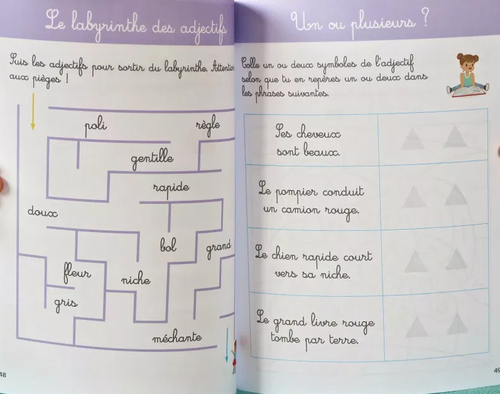 Le labyrinthe des adjectifs
Suis les adjectifs pour sortir du labyrinthe. Attention
aux pièges !
poli
règle
gentille
rapide
doux
bol
grand
fleur
niche
gris
méchante
48
Un ou plusieurs ?
Colle un ou deux symboles de l'adjectif
selon que tu en repères un ou deux dans
les phrases suivantes.
Ses cheveux
sont beaux.
Le pompier conduit
un camion rouge.
Le chien rapide court
vers sa niche.
Le grand livre rouge
tombe par terre.
49